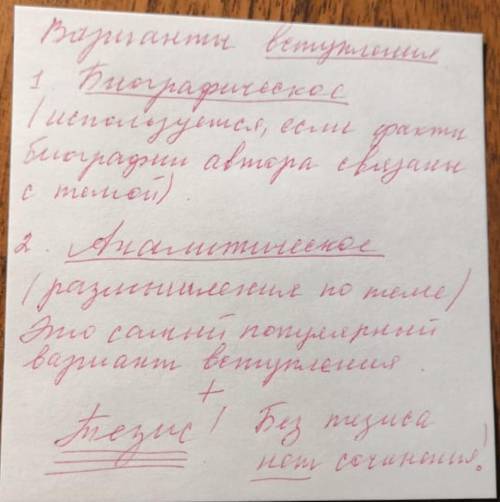 Варианты вступления
1 Биографическое
(используется, если факты
биографии автора связаны
с темой)
2. Аналитическое
(размышления по теме)
Это самый популярный
вариант вступления.
+
Тезис! Без тезиса
нет сочинения!